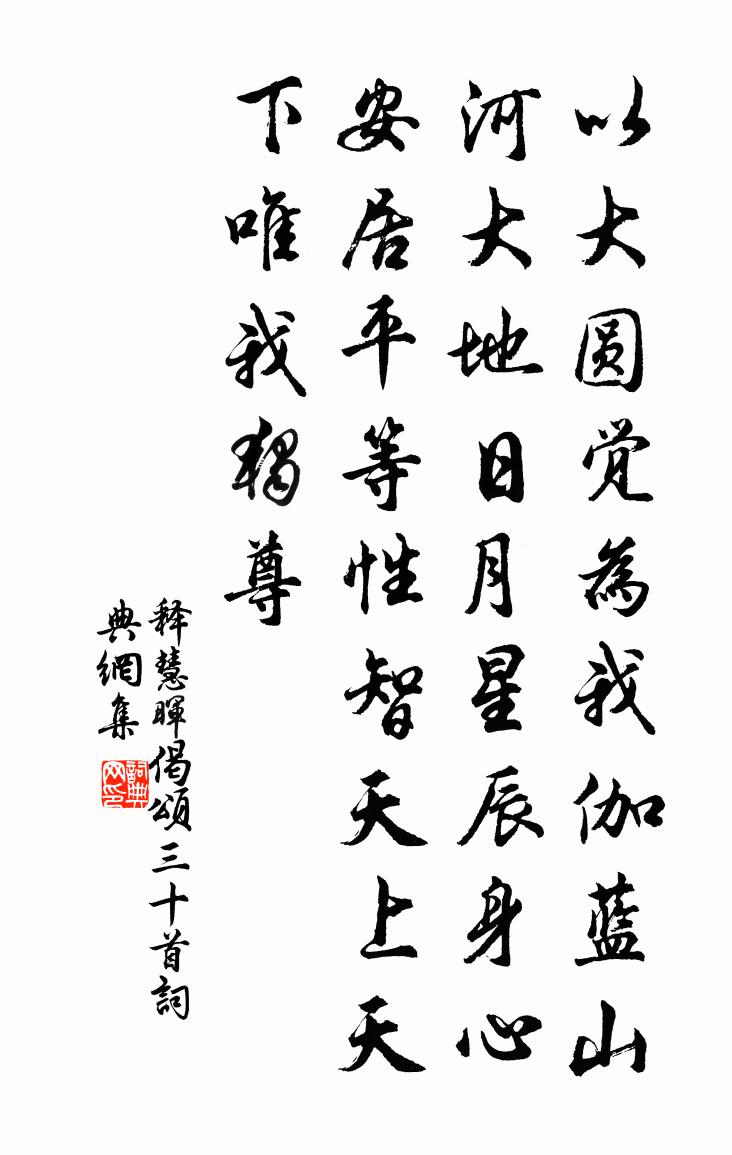 以大圆觉為我伽蓝山
河大地日月星辰身心
安居平等性智天上天
下唯我獨尊
释慧暉偈頌三十首詞
典網集
詞典
网印